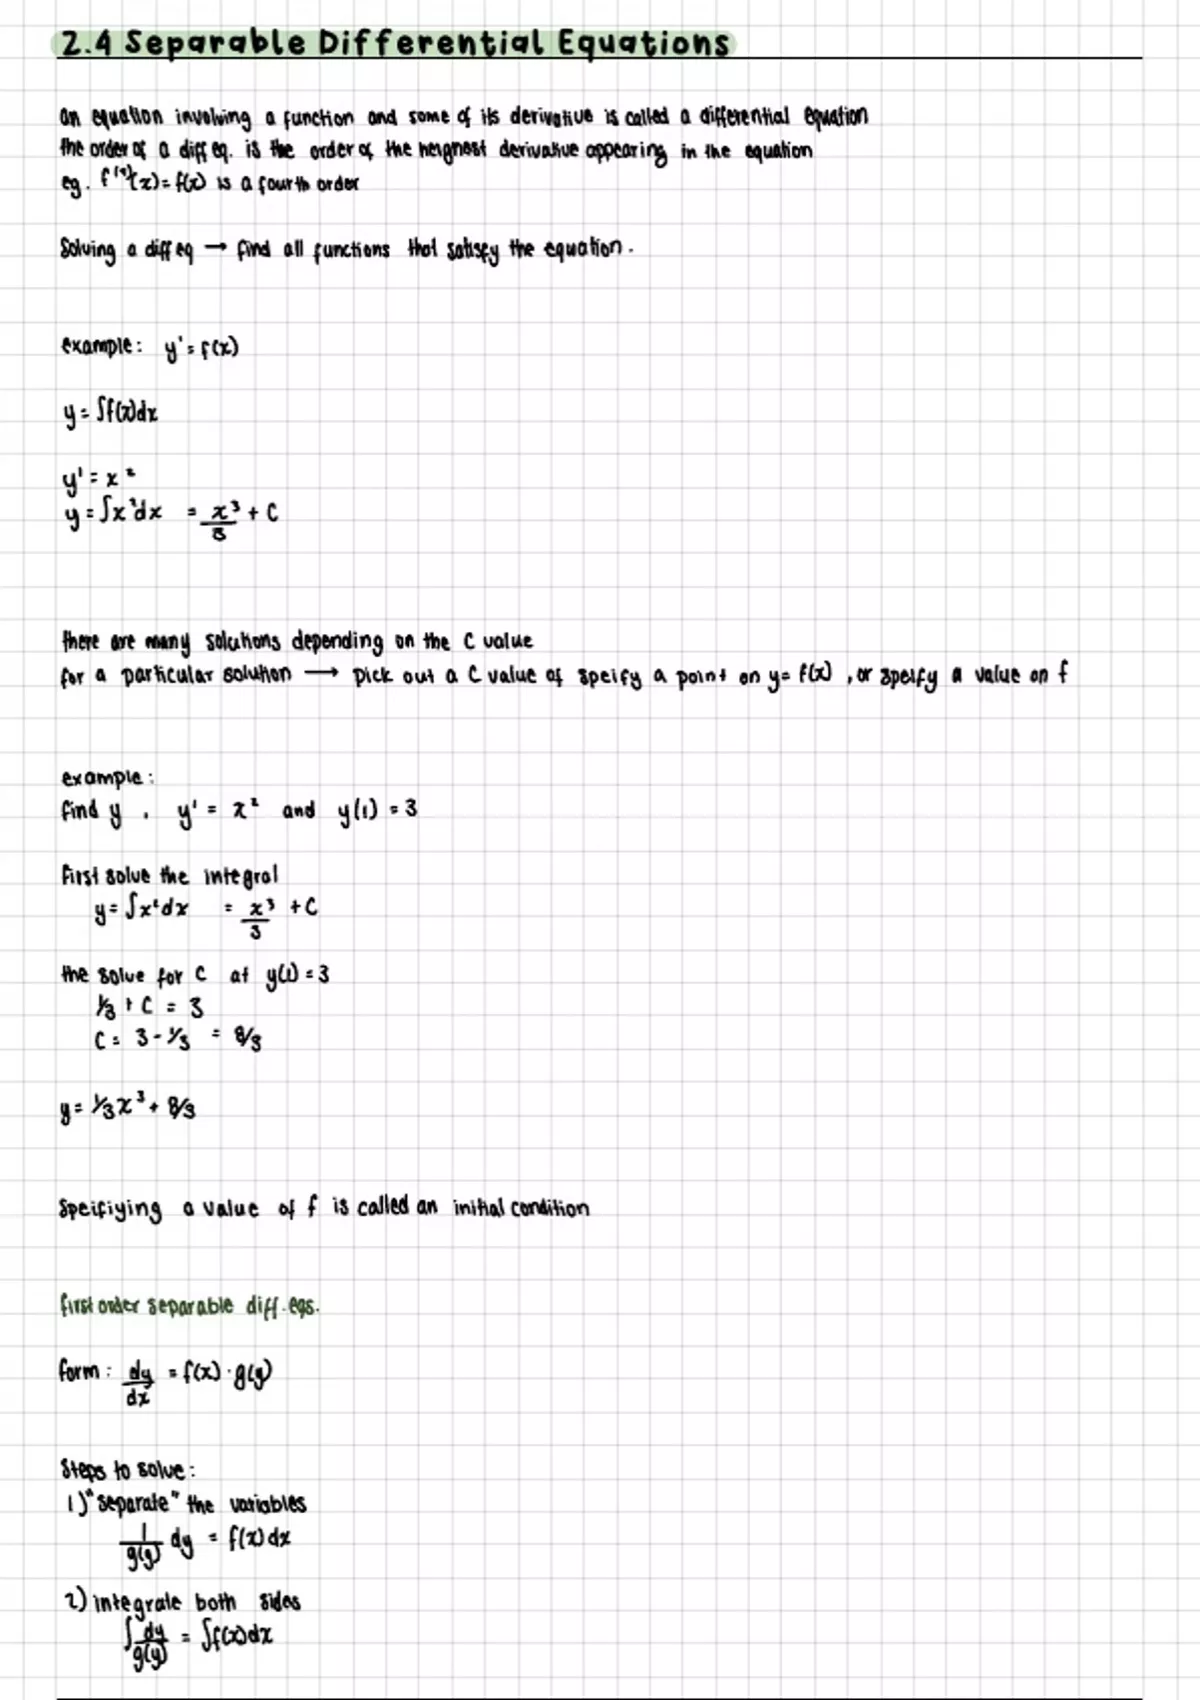 2.4 Separable Differential Equations
an equation involving a function and some of its derivative is called a differential equation
the order of a diff eq. is the order of the heighest derivative appearing in the equation
eg. f⁽⁴⁾(x) = f(x) is a fourth order
Solving a diff eq → find all functions that satisfy the equation.
example: y' = f(x)
y = ∫f(x)dx
y' = x²
y = ∫x²dx = x³/3 + C
there are many solutions depending on the C value
for a particular solution → pick out a C value of speify a point on y = f(x), or speify a value on f
example:
find y . y' = x² and y(1) = 3
First solve the integral
y = ∫x²dx = x³/3 + C
the solve for C at y(1) = 3
1/3 + C = 3
C = 3 - 1/3 = 8/3
y = 1/3x³ + 8/3
Speifiying a value of f is called an initial condition
first order separable diff. eqs.
form: dy/dx = f(x) · g(y)
Steps to solve:
1) "separate" the variables
1/g(y) dy = f(x)dx
2) integrate both sides
∫dy/g(y) = ∫f(x)dx